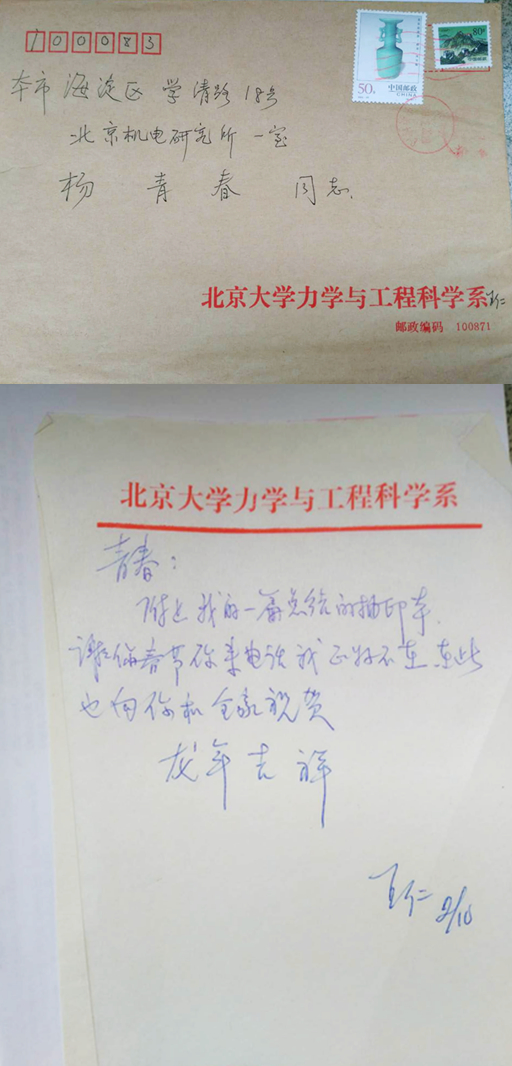 100083
本市海淀区学清路18号
北京机电研究所一室
杨青春同志
50分
中国邮政
CHINA
80分
北京大学力学与工程科学系 王仁
邮政编码 100871
北京大学力学与工程科学系
青春:
附上我的一篇总结的抽印本.
谢谢你春节你来电话我正好不在,在此
也向你和全家祝贺
龙年吉祥
王仁 2/18